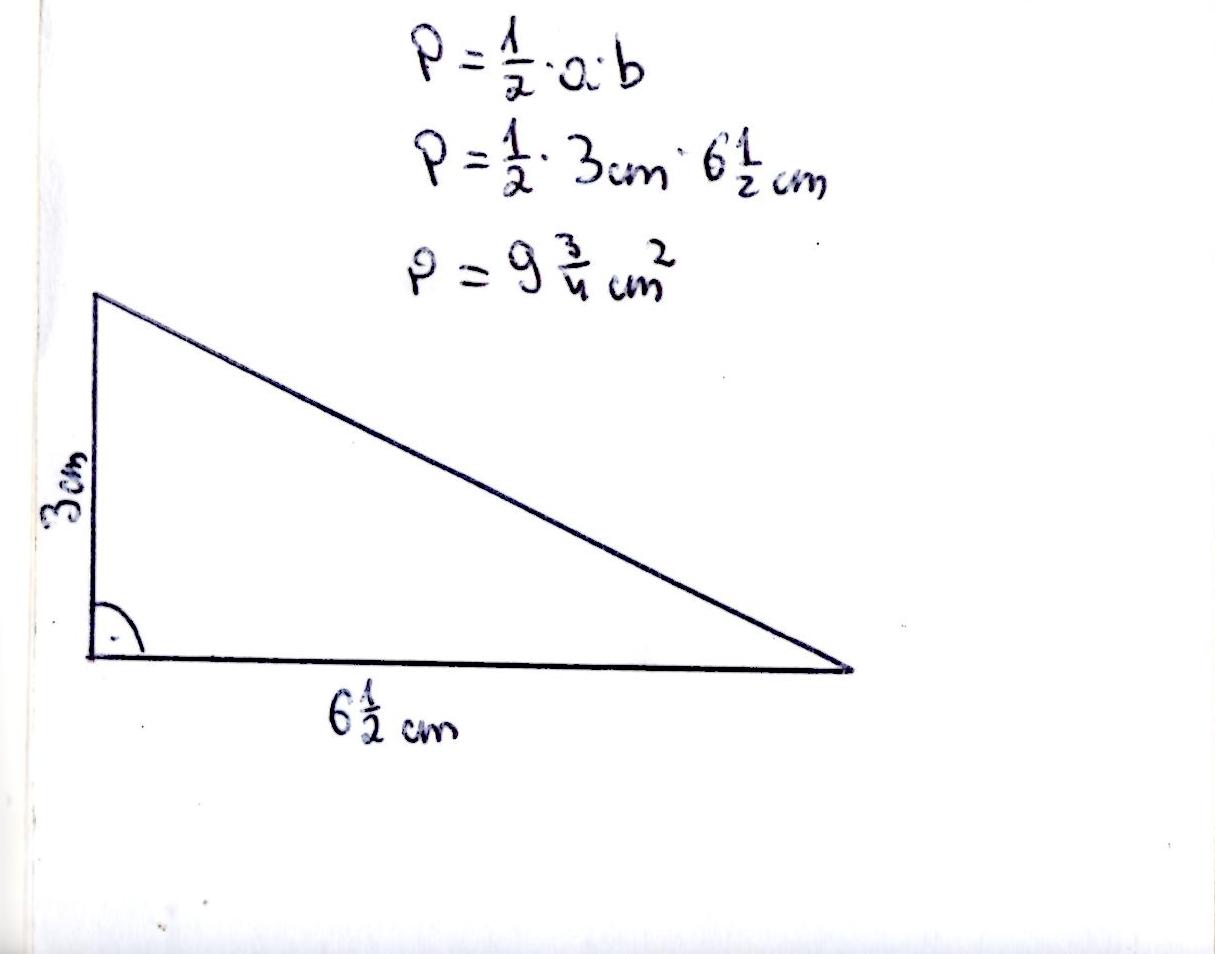 P = 1/2 · a · b
P = 1/2 · 3cm · 6 1/2 cm
P = 9 3/4 cm²
3cm
6 1/2 cm